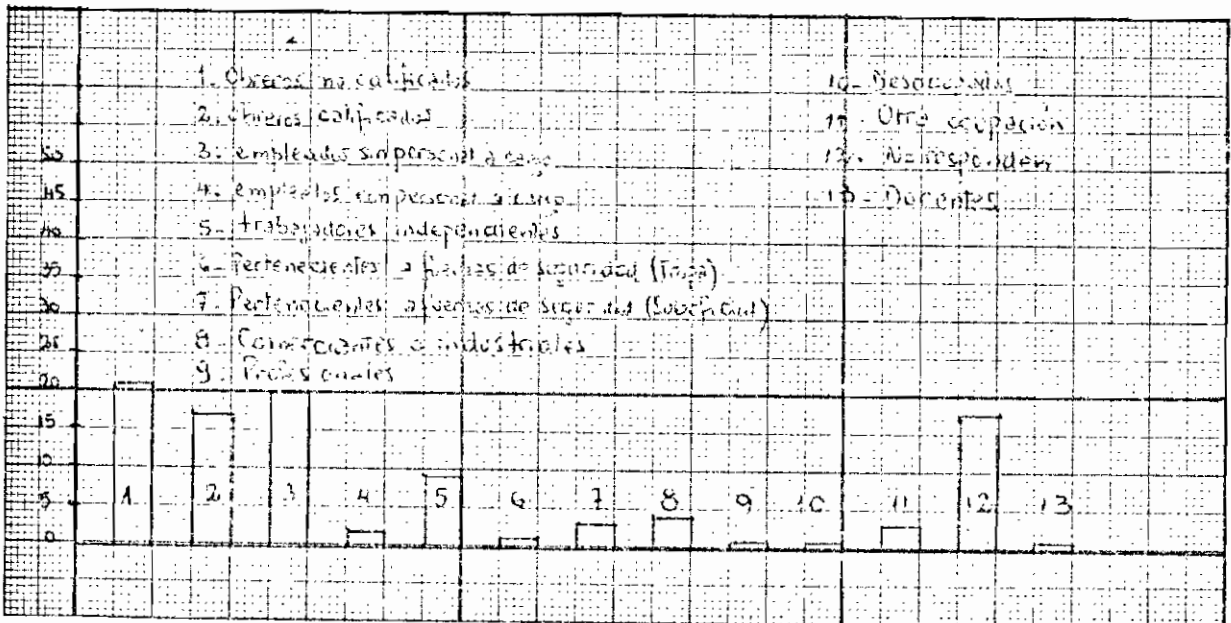 1. Obreros no calificados
2. Obreros calificados
3. empleados sin personal a cargo
4. empleados con personal a cargo
5. trabajadores independientes
6. Pertenecientes a fuerzas de seguridad (Tropa)
7. Pertenecientes a fuerzas de seguridad (Suboficial)
8. Comerciantes o industriales
9. Profesionales
10. Desocupados
11. Otra ocupación
12. No responden
13. Docentes
50
45
40
35
30
25
20
15
10
5
0
1 2 3 4 5 6 7 8 9 10 11 12 13